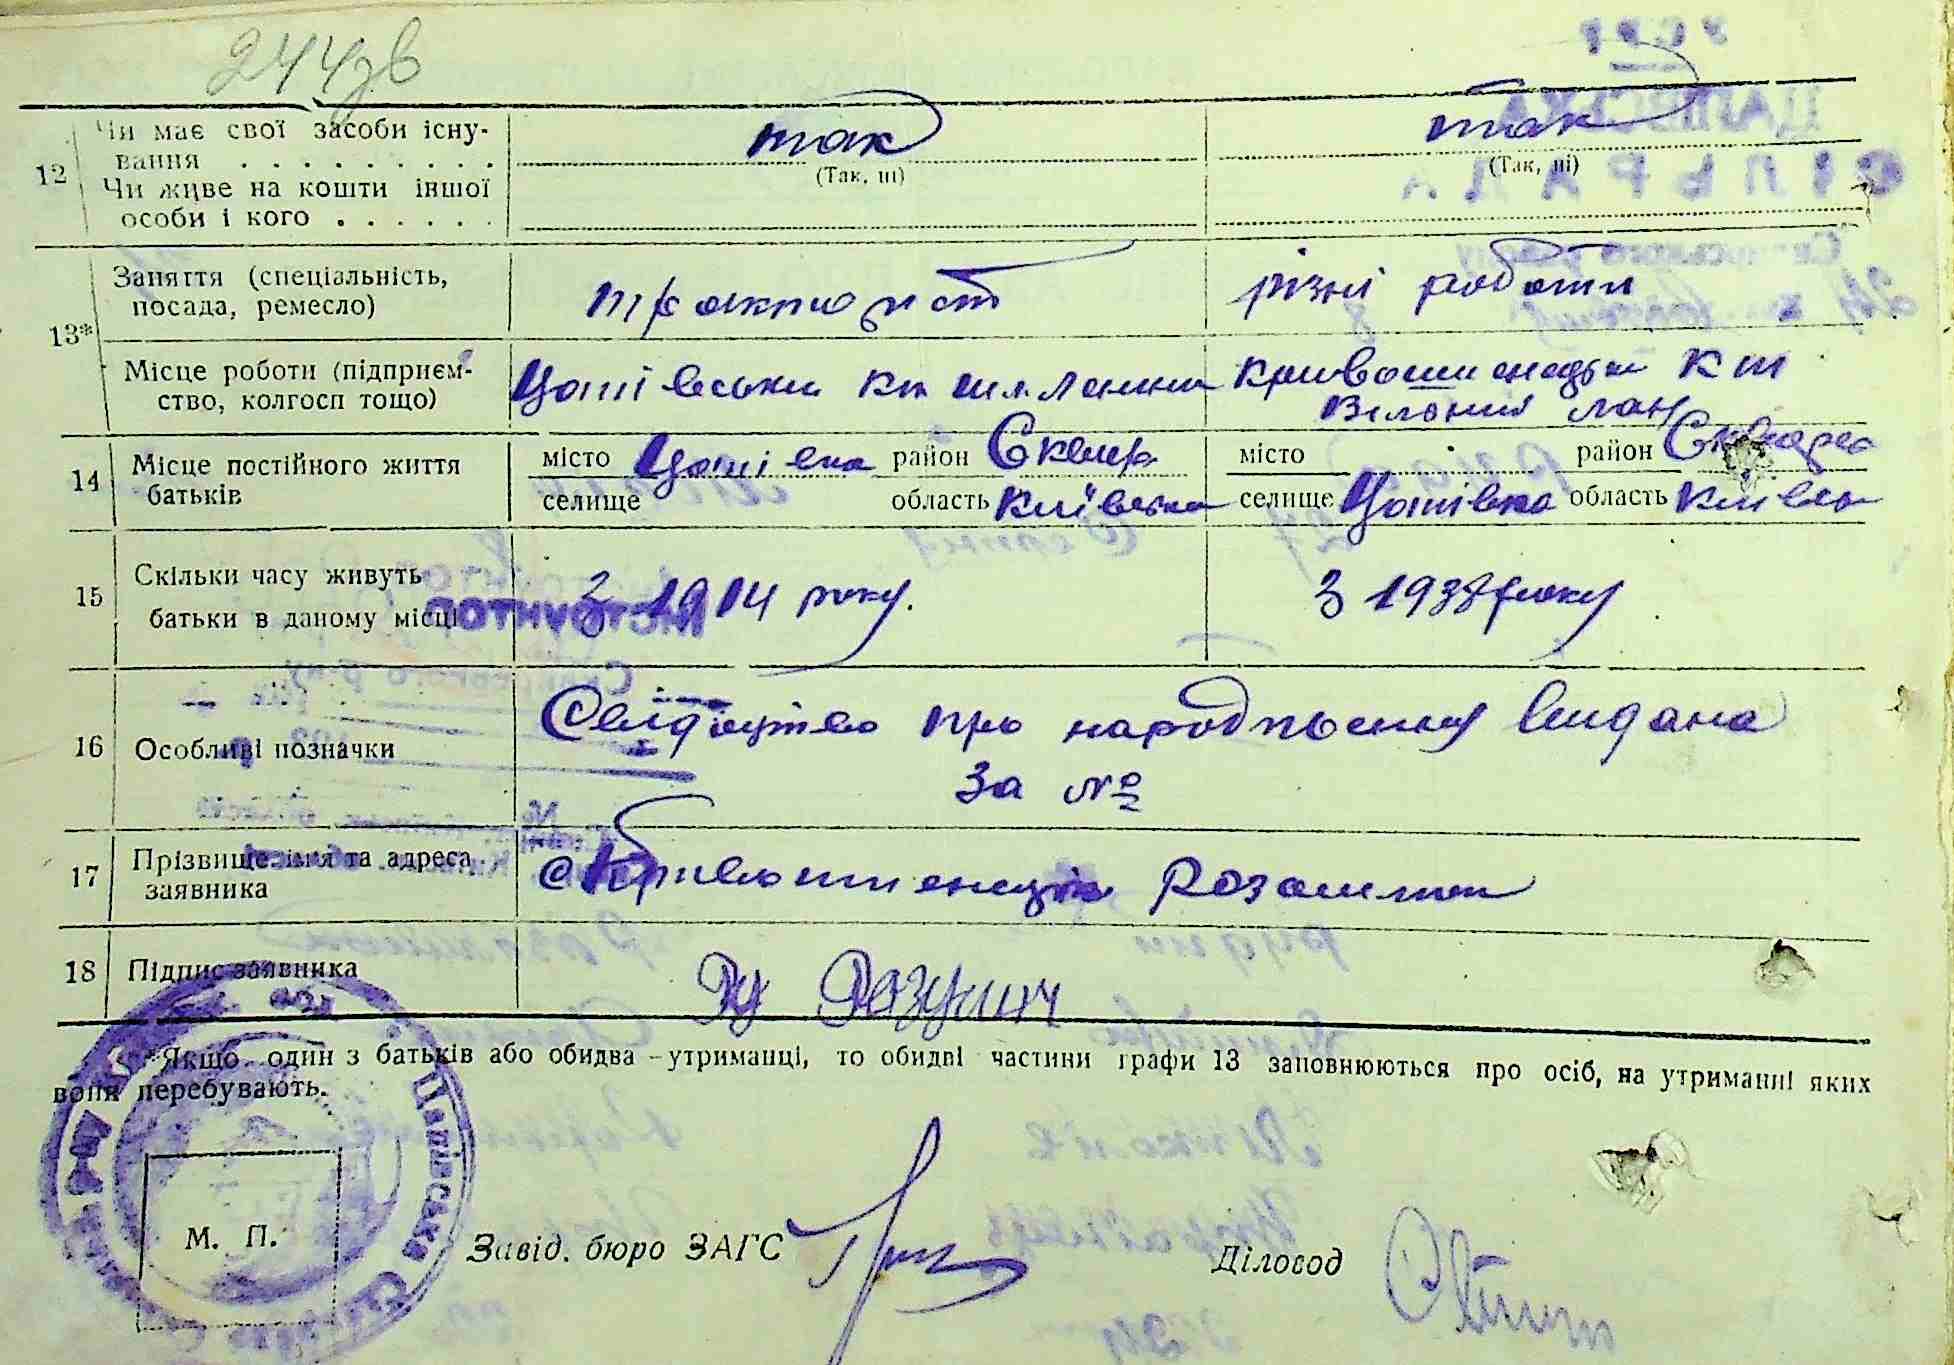 244зв
12
Чи має свої засоби існу-
вання . . . . . . . . .
Чи живе на кошти іншої
особи і кого . . . . . .
так
(Так, ні)
так
(Так, ні)
13*
Заняття (спеціальність,
посада, ремесло)
тракторист
різні роботи
Місце роботи (підприєм-
ство, колгосп тощо)
Цапівський кт
кт
Вільний лан
14
Місце постійного життя
батьків
місто Цапівка район Сквир
селище область Київська
місто район
селище Цапівка область Київсь
15
Скільки часу живуть
батьки в даному місці
З 1914 року.
З 1938 року
16
Особливі позначки
Свідоцтво про народження видана
за №
17
Прізвище, ім'я та адреса
заявника
18
Підпис заявника
*Якщо один з батьків або обидва - утриманці, то обидві частини графи 13 заповнюються про осіб, на утриманні яких
вони перебувають.
М. П.
Цапівська
Завід. бюро ЗАГС
Діловод